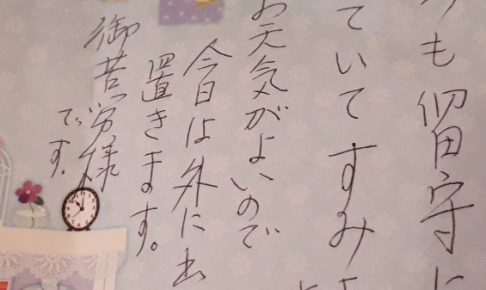 も留守に
ていてすみ
お天気がよいので
今日は外に出
置きます。
御苦労様
です。